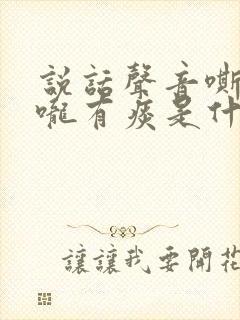 説話聲音嘶
嚨有痰是什
讓讓我要開花